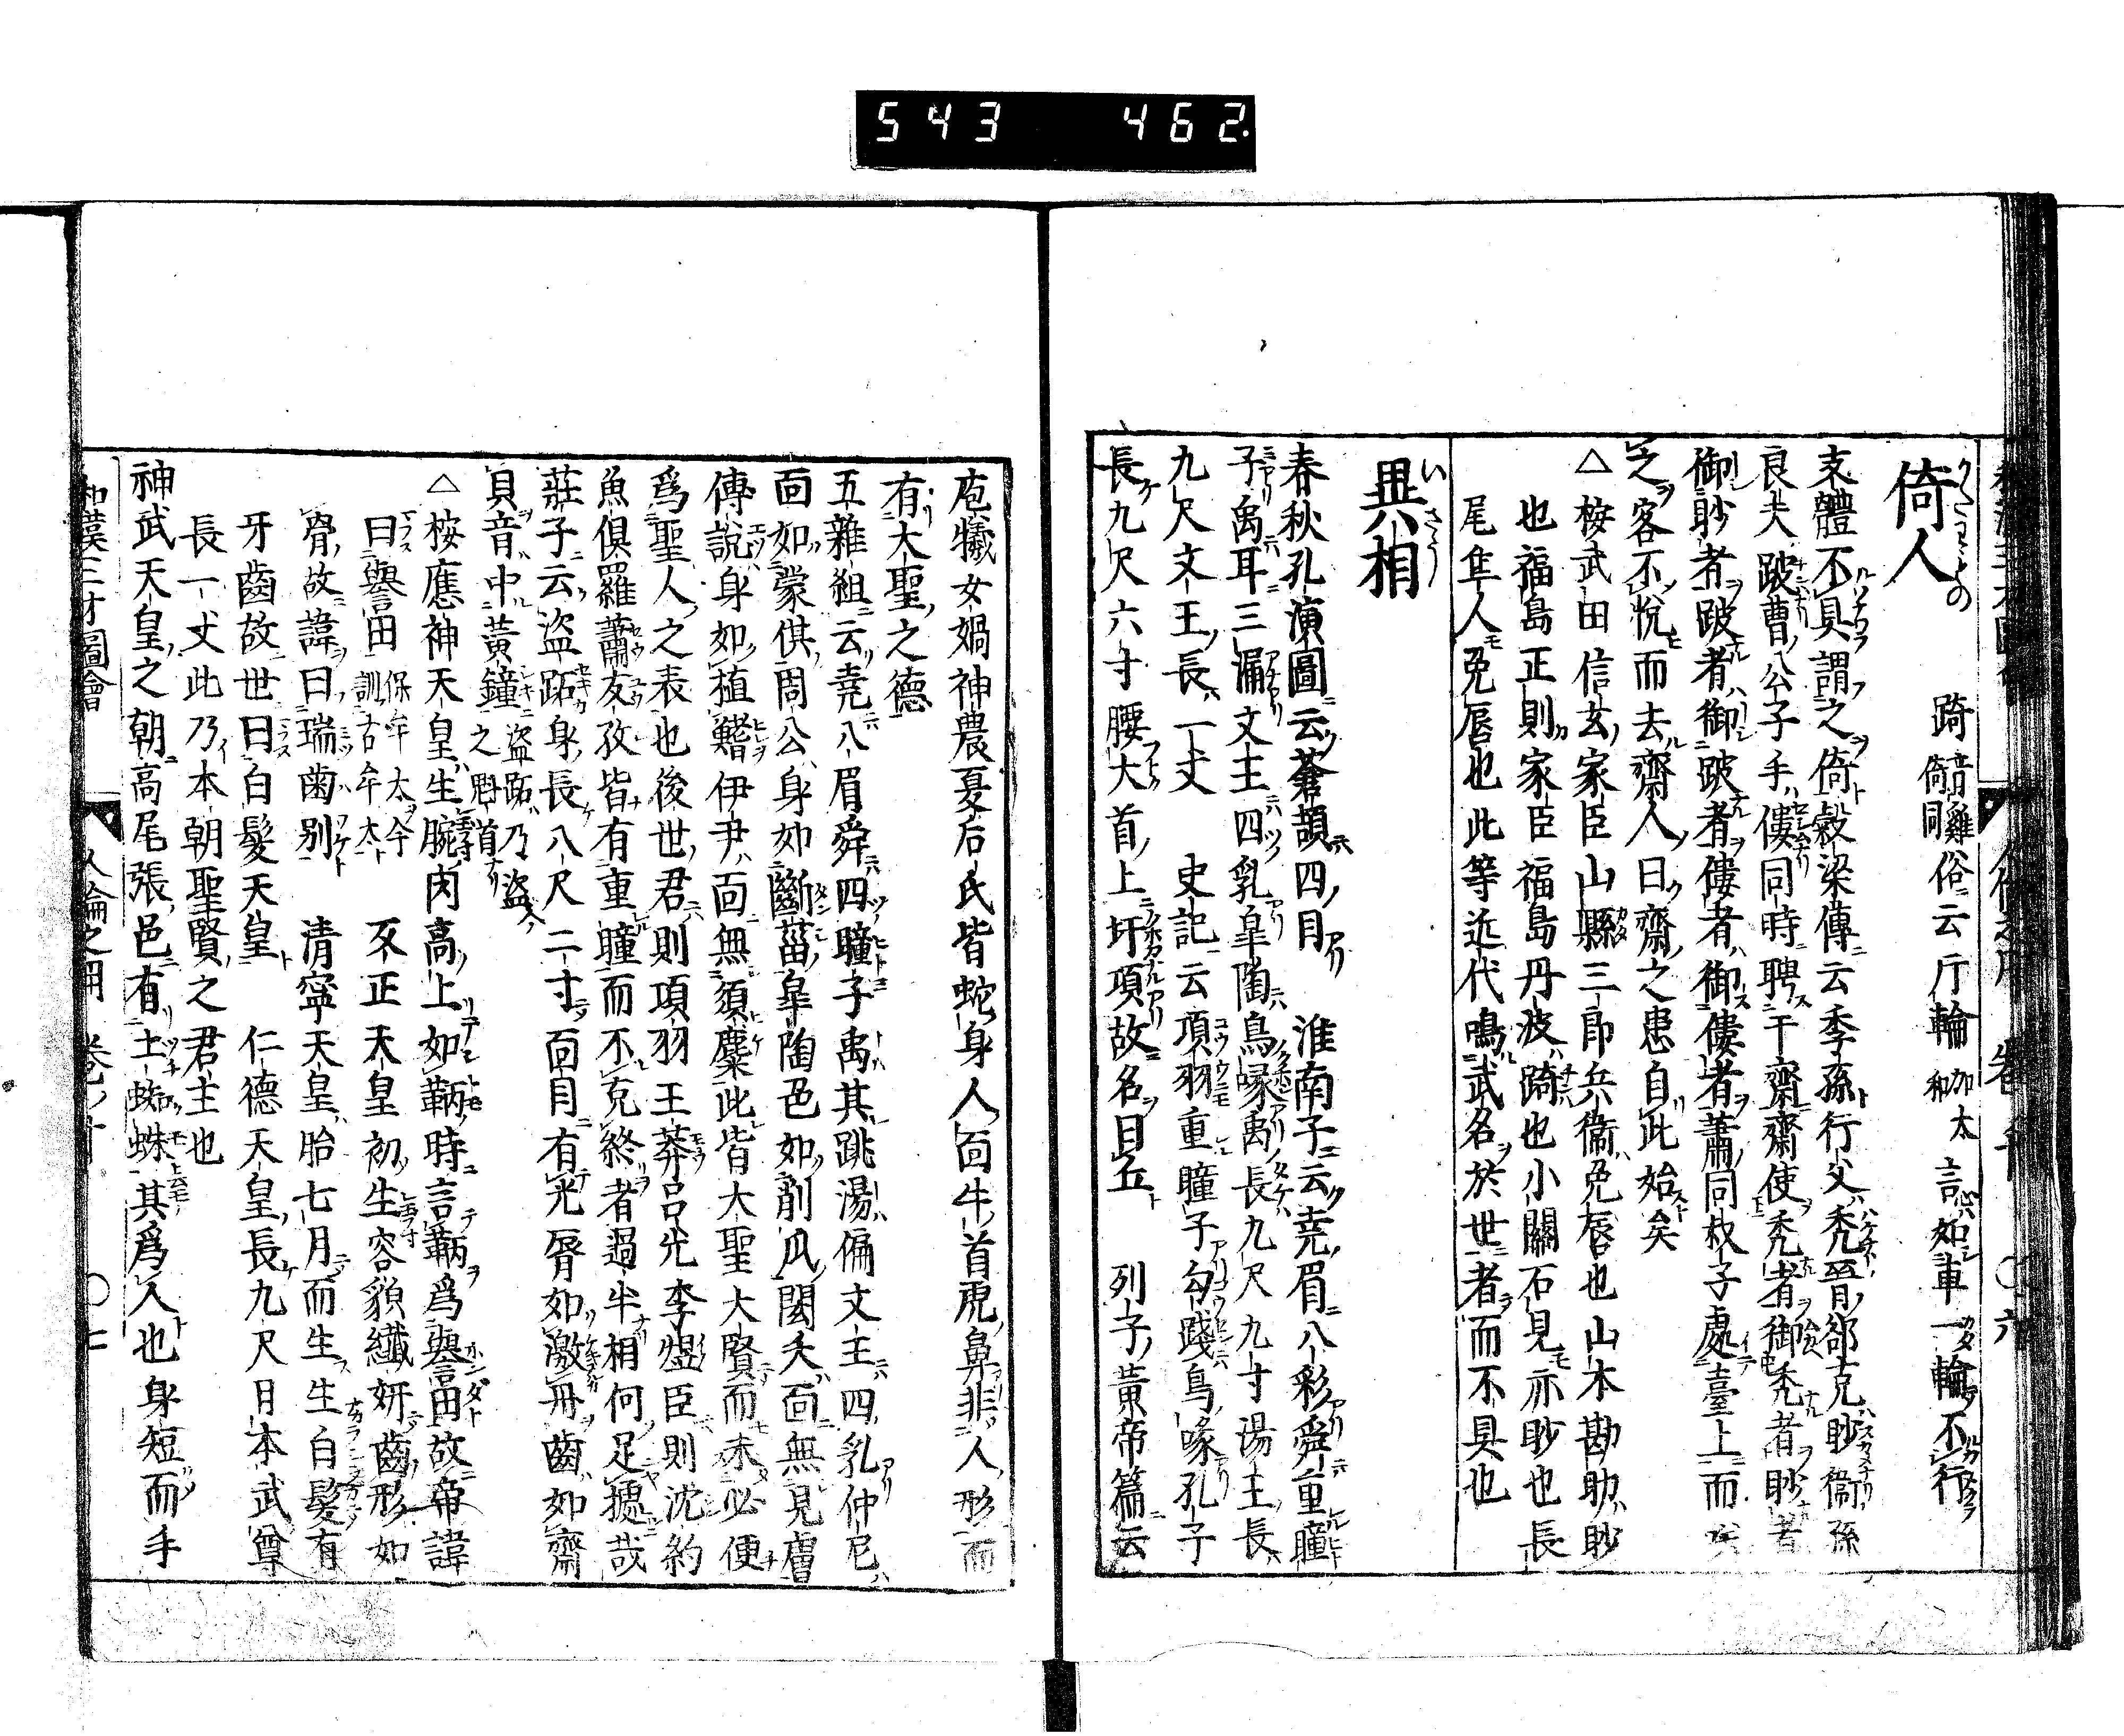 543 462.
倚人
踦 音雞 倚同 俗云斤輪 加太和 言心如車一輪不行
支體不具謂之倚穀梁傳云季孫行父禿晉郤克眇衞孫
良夫跛曹公子手僂同時聘于齊齊使禿者御禿者眇者
御眇者跛者御跛者僂者御僂者蕭同叔子處臺上而笑
之客不悅而去齊人曰齊之患自此始矣
△桉武田信玄家臣山縣三郎兵衞免唇也山本勘助眇
也福島正則家臣福島丹波踦也小關石見亦眇也長
尾隼人免唇也此等近代鳴武名於世者而不具也
異相 いさう
春秋孔演圖云蒼頡四目 淮南子云堯眉八彩舜重瞳
子禹耳三漏文王四乳皐陶鳥喙禹長九尺九寸湯王長
九尺文王長一丈 史記云項羽重瞳子勾踐鳥喙孔子
長九尺六寸腰大首上圩項故名曰丘 列子黃帝篇云
庖犧女媧神農夏后氏皆蛇身人面牛首虎鼻非人形而
有大聖之德
五雜組云堯八眉舜四瞳子禹其跳湯偏文王四乳仲尼
面如蒙倛周公身如斷菑皐陶色如削瓜閎夭面無見膚
傳說身如植鰭伊尹面無須麋此皆大聖大賢而未必便
爲聖人之表也後世君則項羽王莽呂光李煜臣則沈約
魚俱羅蕭友孜皆有重瞳而不克終者過半相何足據哉
莊子云盜跖身長八尺二寸面目有光脣如激丹齒如齊
貝音中黃鐘 盜跖乃盜之魁首
△桉應神天皇生腕肉高上如鞆時言鞆爲譽田故帝諱
曰譽田 保牟太今訓古牟太 反正天皇初生容貌纖姸齒形如
骨故諱曰瑞齒別 清寧天皇胎七月而生生白髮有
牙齒故世曰白髮天皇 仁德天皇長九尺日本武尊
長一丈此乃本朝聖賢之君主也
神武天皇之朝高尾張邑有土蜘蛛其爲人也身短而手
和漢三才圖會 人倫之用 卷ノ十 〇七